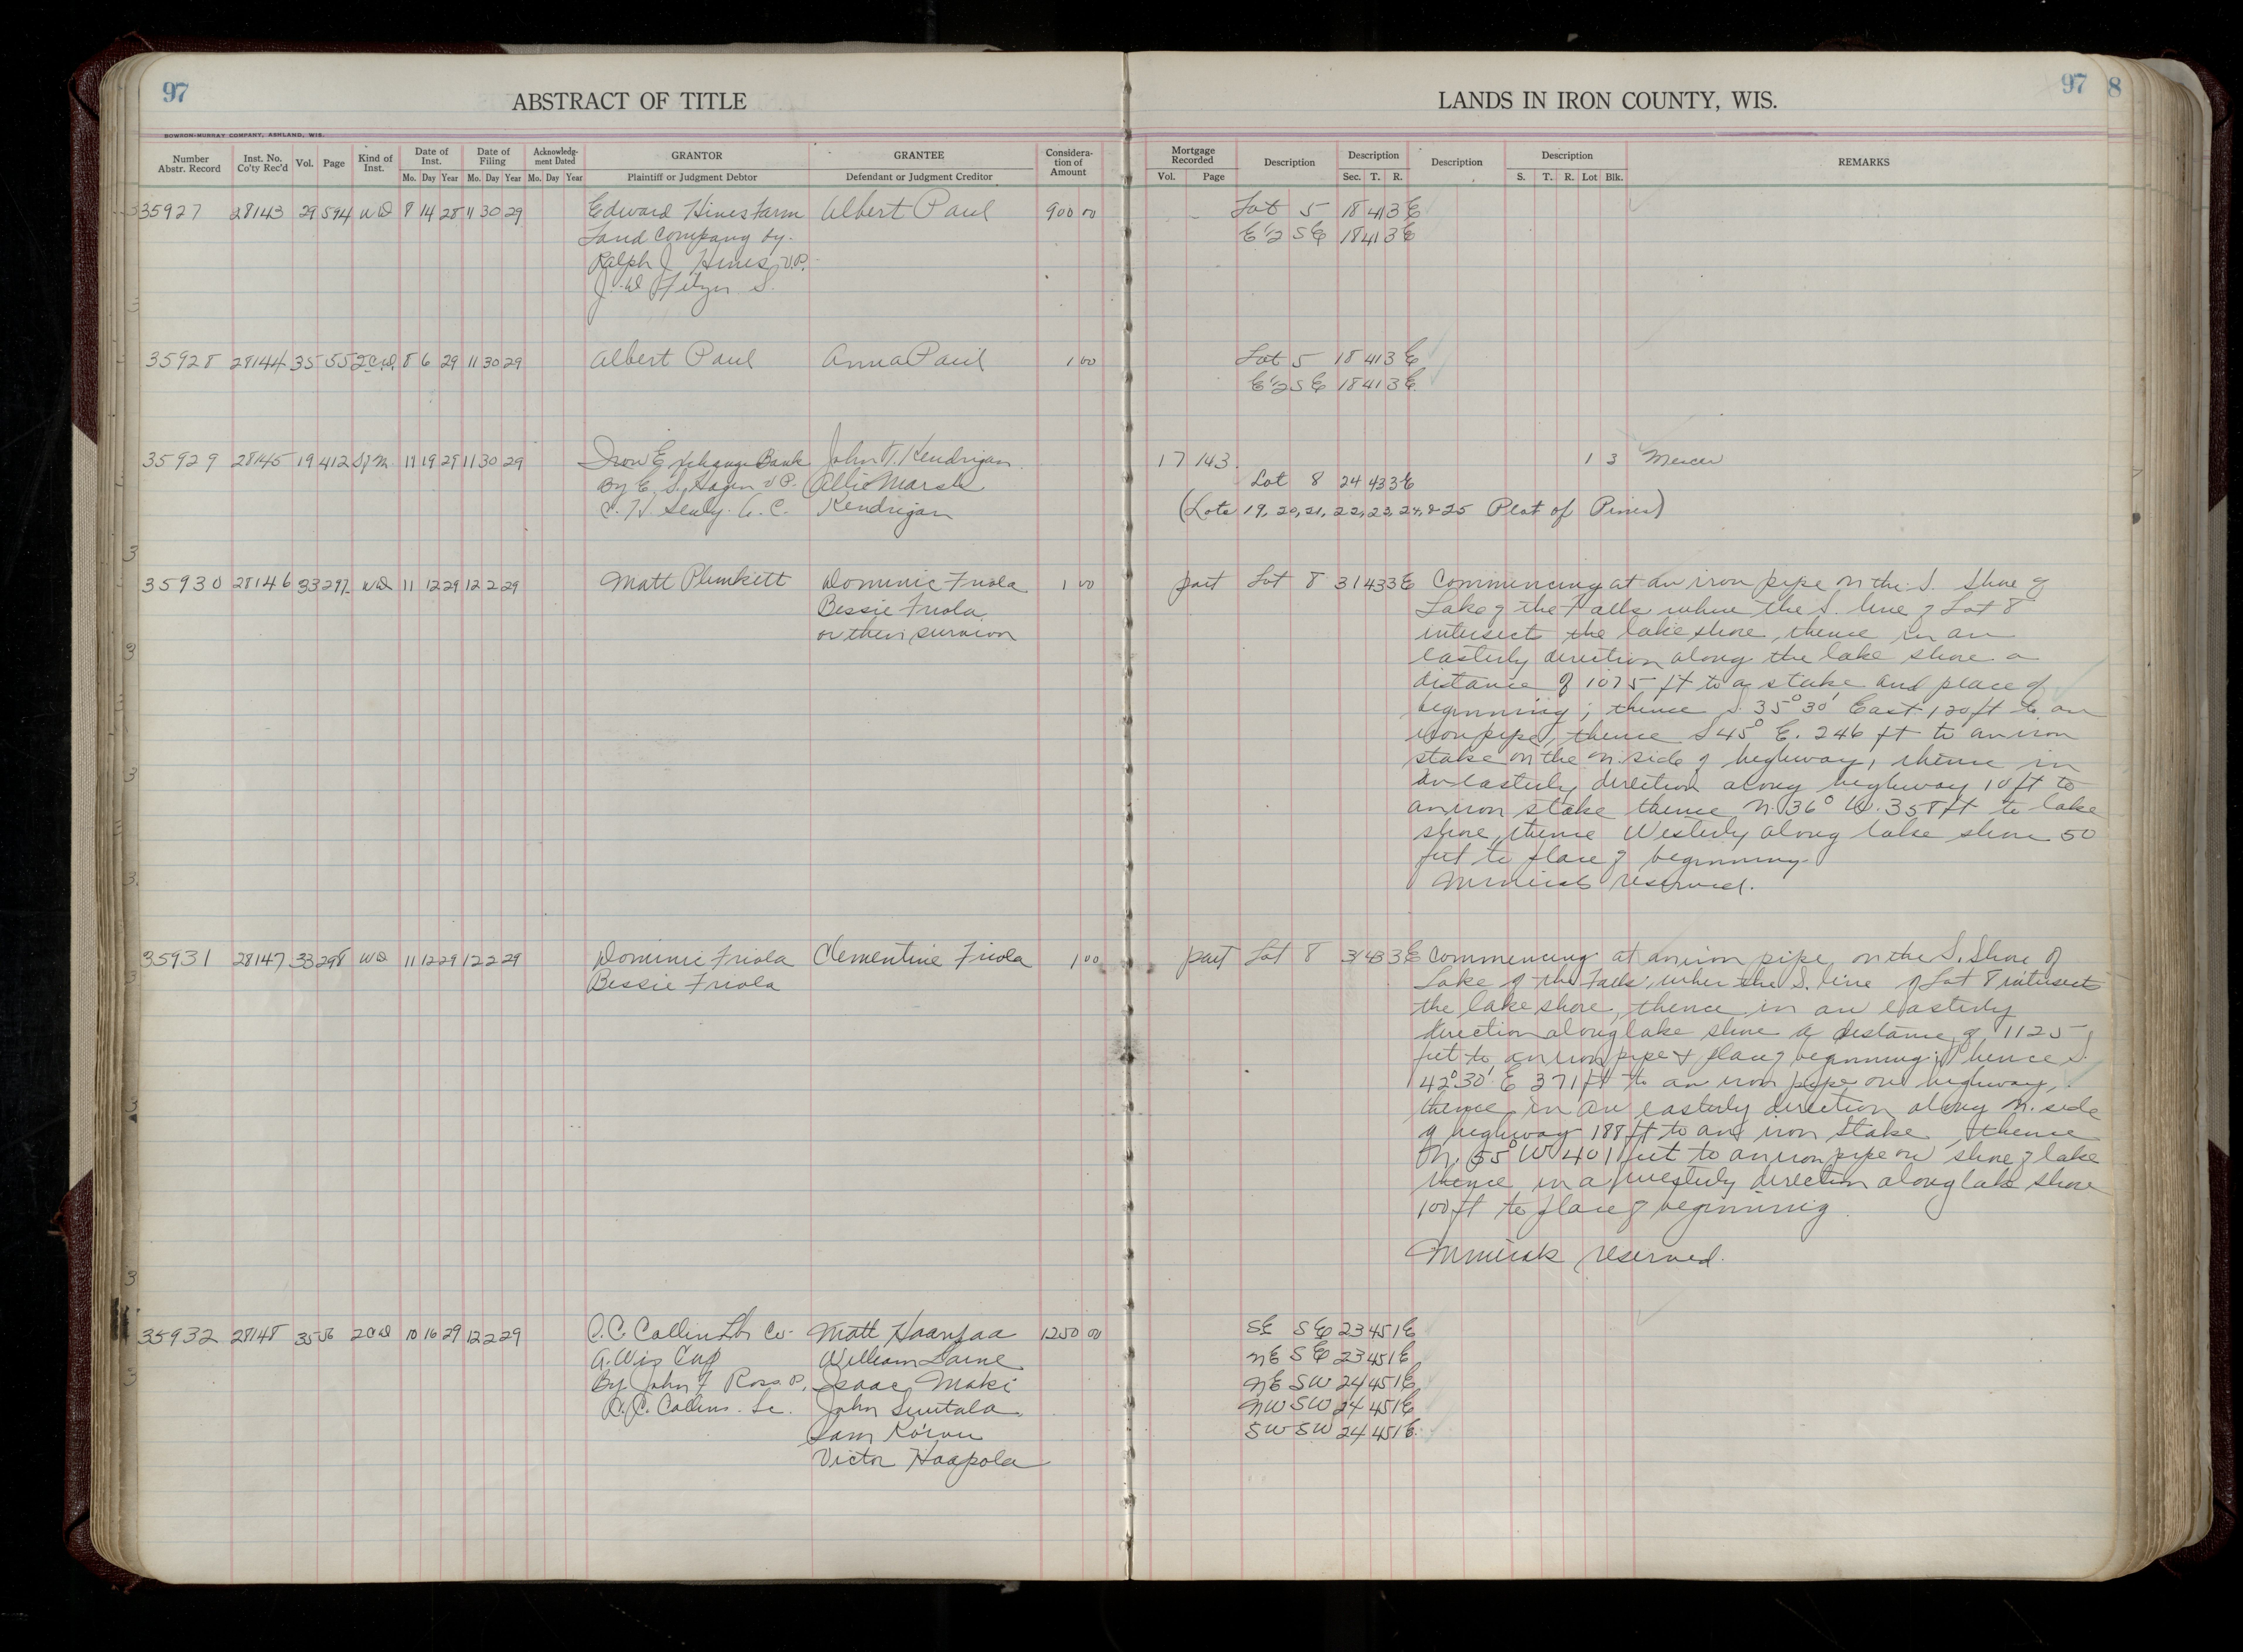 97
ABSTRACT OF TITLE
BOWRON-MURRAY COMPANY, ASHLAND, WIS.
Number Abstr. Record
Inst. No. Co'ty Rec'd
Vol.
Page
Kind of Inst.
Date of Inst.
Mo. Day Year
Date of Filing
Mo. Day Year
Acknowledg-ment Dated
Mo. Day Year
GRANTOR
Plaintiff or Judgment Debtor
GRANTEE
Defendant or Judgment Creditor
Considera-tion of Amount
35927 28143 29 594 WD 8 14 28 11 30 29 Edward Hines Farm Albert Paul 900 00
Land Company by
Ralph J Hines V.P.
35928 28144 35 55 2C.D. 8 6 29 11 30 29 Albert Paul Anna Paul 1 00
35929 28145 19 412 11 19 29 11 30 29 Iron Exchange Bank John T. Kendrigan
By E. S. Hagen V P. Allie Marsh
Kendrigan
35930 28146 33 297 WD 11 12 29 12 2 29 Matt Plunkett Dominic Friola 1 00
Bessie Friola
or their survivor
35931 28147 33 298 WD 11 12 29 12 2 29 Dominic Friola Clementine Friola 1 00
Bessie Friola
35932 28148 35 56 2CD 10 16 29 12 2 29 C.C. Collins Lbr Co. Matt Haanpaa 1250 00
A. Wis Corp William Laine
By John F Ross P. Isaac Maki
C.C. Collins Sc. John
Sam
Victor Haapola
LANDS IN IRON COUNTY, WIS.
97
8
Mortgage Recorded
Vol. Page
Description
Description
Sec. T. R.
Description
Description
S. T. R. Lot Blk.
REMARKS
Lot 5 18 41 3 E
E 1/2 S E 18 41 3 E
Lot 5 18 41 3 E
E 1/2 S E 18 41 3 E
17 143. 1 3 Mercer
Lot 8 24 43 3 E
(Lots 19, 20, 21, 22, 23, 24, & 25 Plat of Pines)
part Lot 8 31 43 3 E Commencing at an iron pipe on the S. Shore of
Lake of the Falls where the S. line of Lot 8
intersect the lake shore, thence in an
easterly direction along the lake shore a
distance of 1075 ft to a stake and place of
beginning; thence S. 35° 30' East 120 ft to an
iron pipe, thence S 45° E. 246 ft to an iron
stake on the N. side of highway, thence in
an easterly direction along highway 10 ft to
an iron stake thence N. 36° W. 358 ft to lake
shore, thence Westerly along lake shore 50
feet to place of beginning.
Minerals reserved.
part Lot 8 31 43 3 E Commencing at an iron pipe on the S. Shore of
Lake of the Falls, where the S. line of Lot 8 intersects
the lake shore, thence in an easterly
direction along lake shore a distance of 1125
feet to an iron pipe & place of beginning; thence S.
42° 30' E 371 ft to an iron pipe on highway,
thence in an easterly direction along N. side
of highway 188 ft to an iron stake, thence
N. 55° W 401 feet to an iron pipe on shore of lake
thence in a westerly direction along lake shore
100 ft to place of beginning.
Minerals reserved.
SE SE 23 45 1 E
NE SE 23 45 1 E
NE SW 24 45 1 E
NW SW 24 45 1 E
SW SW 24 45 1 E.